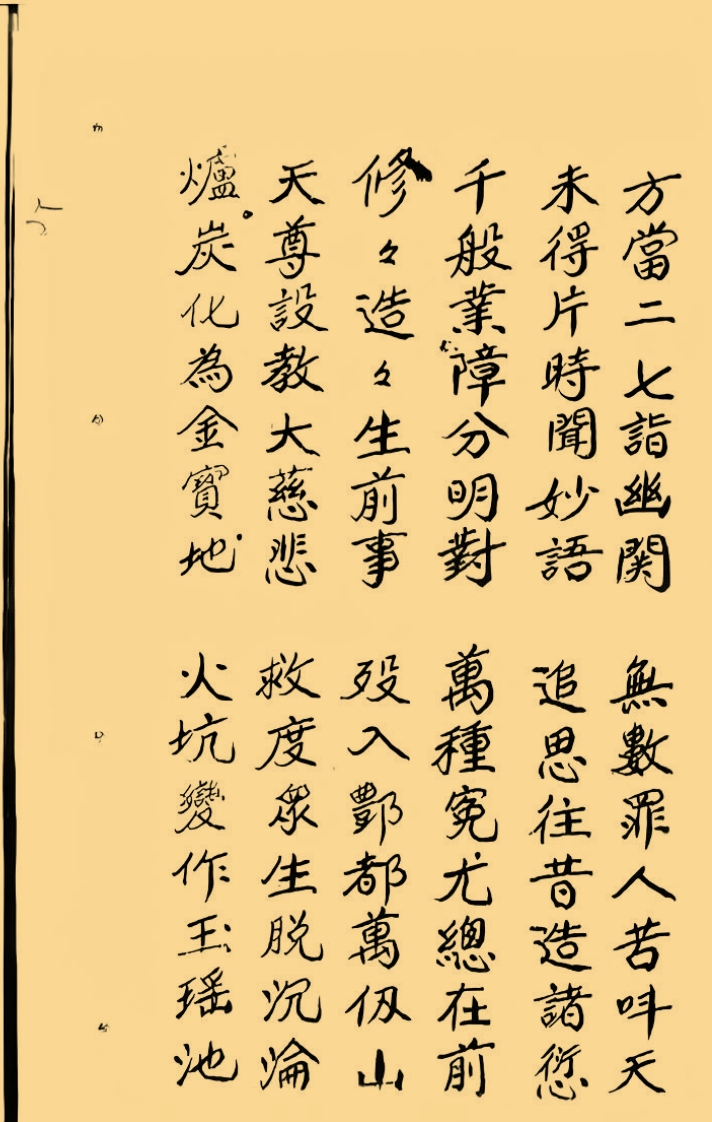 方當二七詣幽関 無數罪人苦呌天
未得片時聞妙語 追思往昔造諸愆
千般業障分明對 萬種寃尤總在前
修々造々生前事 歿入酆都萬仭山
天尊設教大慈悲 救度眾生脱沉淪
爐炭化為金寶地 火坑變作玉瑶池